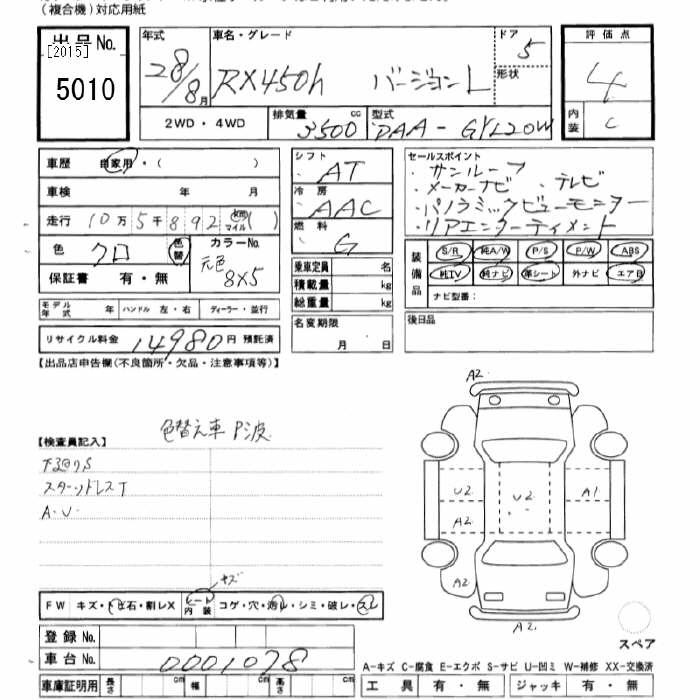 （複合機）対応用紙
出品No.
[2015]
5010
年式
28/8月
車名・グレード
RX450h バージョンL
ドア
5
形状
評価点
4
内装
C
2WD・4WD
排気量
3500cc
型式
DAA-GYL20W
車歴 自家用・（ ）
車検 年 月
走行 10万5千892 km マイル（ ）
色 クロ 色替
カラーNo.
元色
8X5
保証書 有・無
シフト
AT
冷房
AAC
燃料
G
乗車定員 名
積載量 kg
総重量 kg
セールスポイント
・サンルーフ
・メーカーナビ ・テレビ
・パノラミックビューモニター
・リアエンターティメント
装備品
S/R 純A/W P/S P/W ABS
純TV 純ナビ 革シート 外ナビ エアB
ナビ型番：
モデル年式 年 ハンドル 左・右 ディーラー・並行
名変期限
月 日
後日品
リサイクル料金 14980円 預託済
【出品店申告欄(不良箇所・欠品・注意事項等)】
A2
色替え車
【検査員記入】
スタッドレスT
A.U.
U2
U2
A1
A2
A2
A2
キズ
FW キズ・トビ石・割レX シート内装 コゲ・穴・汚レ・シミ・破レ・スレ
登録No.
車台No. 0001078
スペア
A−キズ C−腐食 E−エクボ S−サビ U−凹ミ W−補修 XX−交換済
車庫証明用 長さ cm 幅 cm 高さ cm
工具 有・無 ジャッキ 有・無